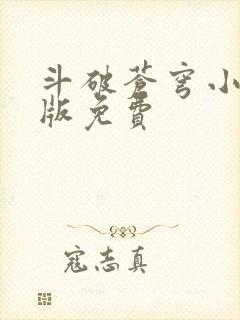 斗破苍穹小
版免費
寇志真